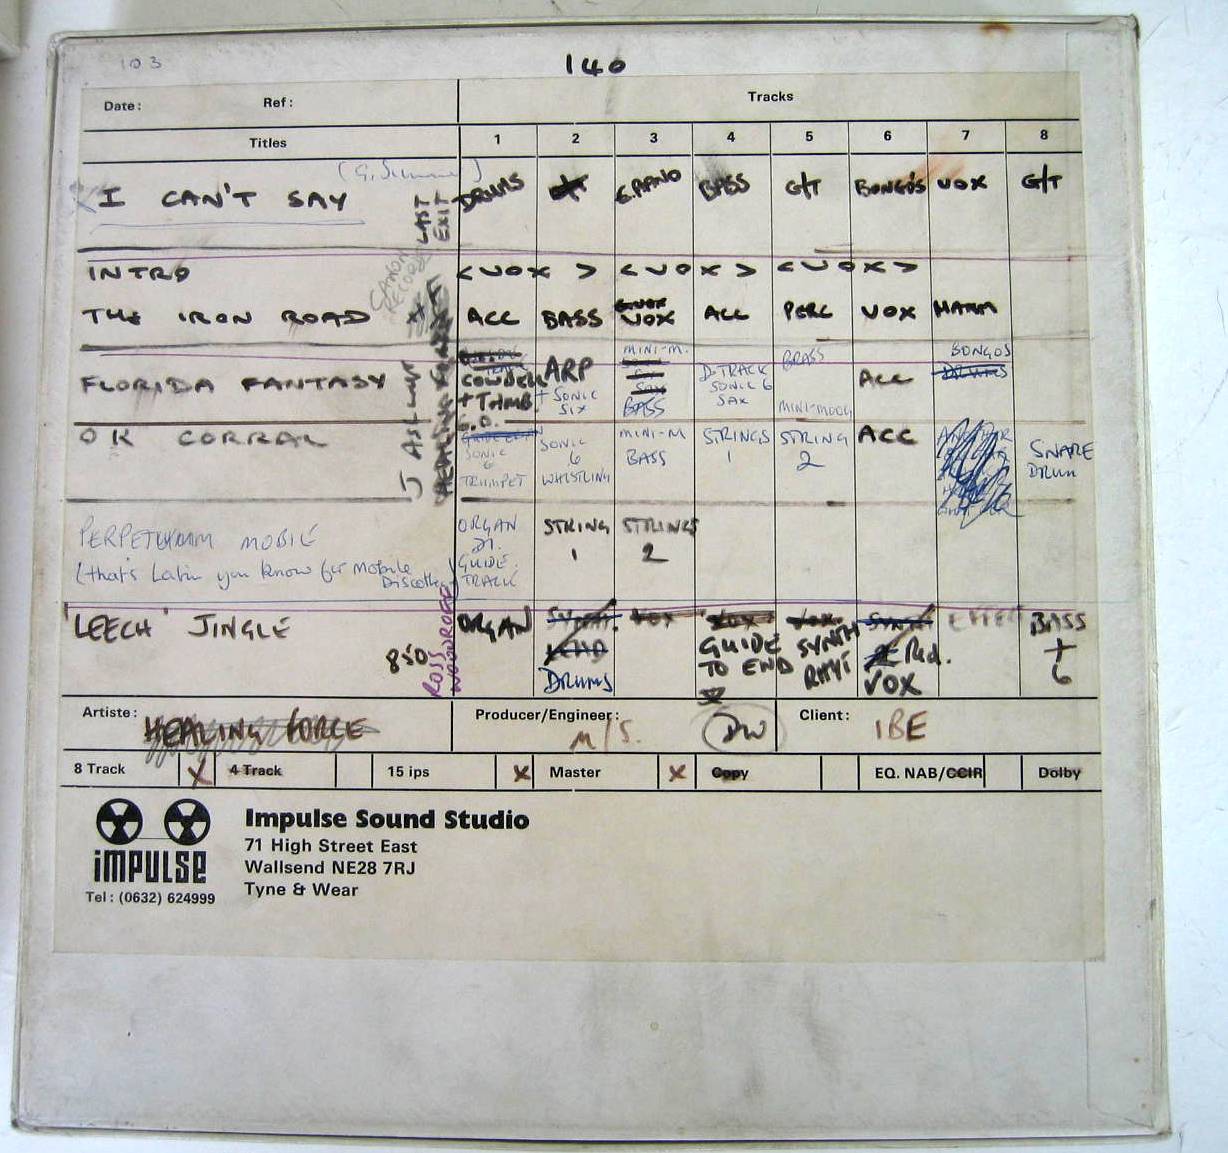 103
140
Date: Ref: Tracks
Titles 1 2 3 4 5 6 7 8
I CAN'T SAY DRUMS E.PIANO BASS G/T BONGO'S VOX G/T
LAST EXIT
INTRO < VOX > < VOX > < VOX >
THE IRON ROAD ACC BASS VOX ACC PERC VOX HARM
FLORIDA FANTASY COWBELL + TAMB. ARP + SONIC SIX MINI-M. SAX BASS D.TRACK SONIC 6 SAX BRASS MINI-MOOG ACC BONGOS DRUMS
OK CORRAL SONIC 6 TRUMPET SONIC 6 WHISTLING MINI-M BASS STRINGS 1 STRING 2 ACC SNARE DRUM
PERPETUUM MOBILE ORGAN GUIDE. TRACK STRING 1 STRINGS 2
(that's Latin you know for Mobile
Discotheque)
'LEECH' JINGLE ORGAN DRUMS VOX VOX GUIDE TO END VOX SYNTH SYNTH VOX EFFECT BASS + 6
850
ROSS
Artiste: HEALING FORCE Producer/Engineer: M/S. DW Client: IBE
8 Track X 4 Track 15 ips X Master X Copy EQ. NAB/CCIR Dolby
IMPULSE
Impulse Sound Studio
71 High Street East
Wallsend NE28 7RJ
Tyne & Wear
Tel: (0632) 624999